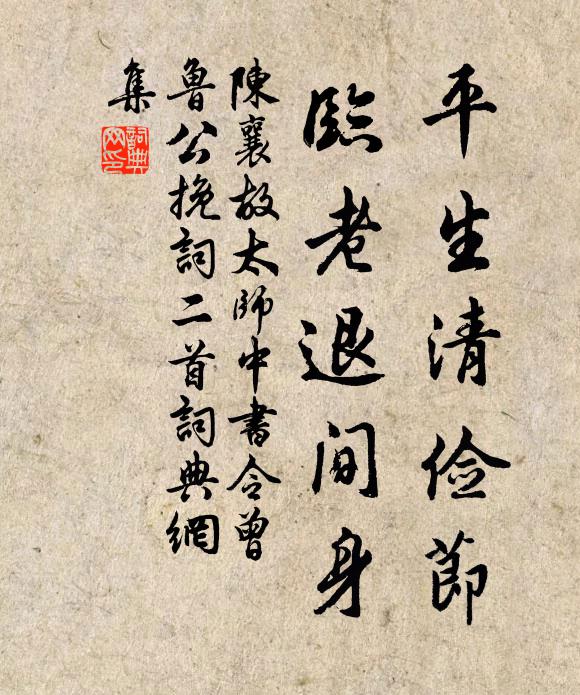 平生清儉節
臨老退閒身
陳襄故太師中書令曾
魯公挽詞二首詞典網
集
詞典網印